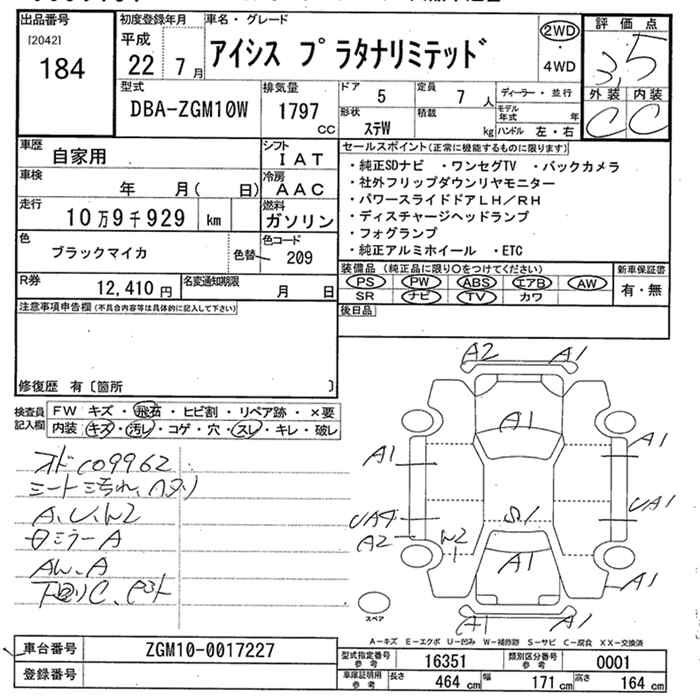 出品番号 初度登録年月 車名・グレード 評価点
[2042] 平成
184 22年 7月 アイシス プラタナリミテッド 2WD・4WD 3.5
型式 排気量 ドア 定員 ディーラー・並行 外装 内装
DBA-ZGM10W 1797cc 5 7人 モデル年式 年 C C
形状 積載
ステW kg ハンドル 左・右
車歴 自家用 シフト IAT セールスポイント(正常に機能するものに限ります)
車検 年 月( 日) 冷房 AAC ・純正SDナビ ・ワンセグTV ・バックカメラ
・社外フリップダウンリヤモニター
走行 10万9千929 km 燃料 ガソリン ・パワースライドドアLH/RH
・ディスチャージヘッドランプ
・フォグランプ
色 ブラックマイカ 色替 色コード 209 ・純正アルミホイール ・ETC
R券 12,410円 名変通知期限 月 日 装備品(純正品に限り○をつけてください) 新車保証書
PS PW ABS エアB AW 有・無
SR ナビ TV カワ
注意事項申告欄(不具合内容等は具体的に記入して下さい) 後日品
修復歴 有〔箇所 〕
検査員記入欄 FW キズ・飛石・ヒビ割・リペア跡・×要
内装 キズ・汚レ・コゲ・穴・スレ・キレ・破レ
A2 A1
A1
A1 A1
UA1
A2 W2 S1
A1 A1
A1 A1
A、U、W2
ミラーA
AW、A
スペア
A-キズ E-エクボ U-凹み W-補修跡 S-サビ C-腐食 XX-交換済
車台番号 ZGM10-0017227 型式指定番号 参考 16351 類別区分番号 参考 0001
登録番号 車庫証明用 参考 長さ 464cm 幅 171cm 高さ 164cm